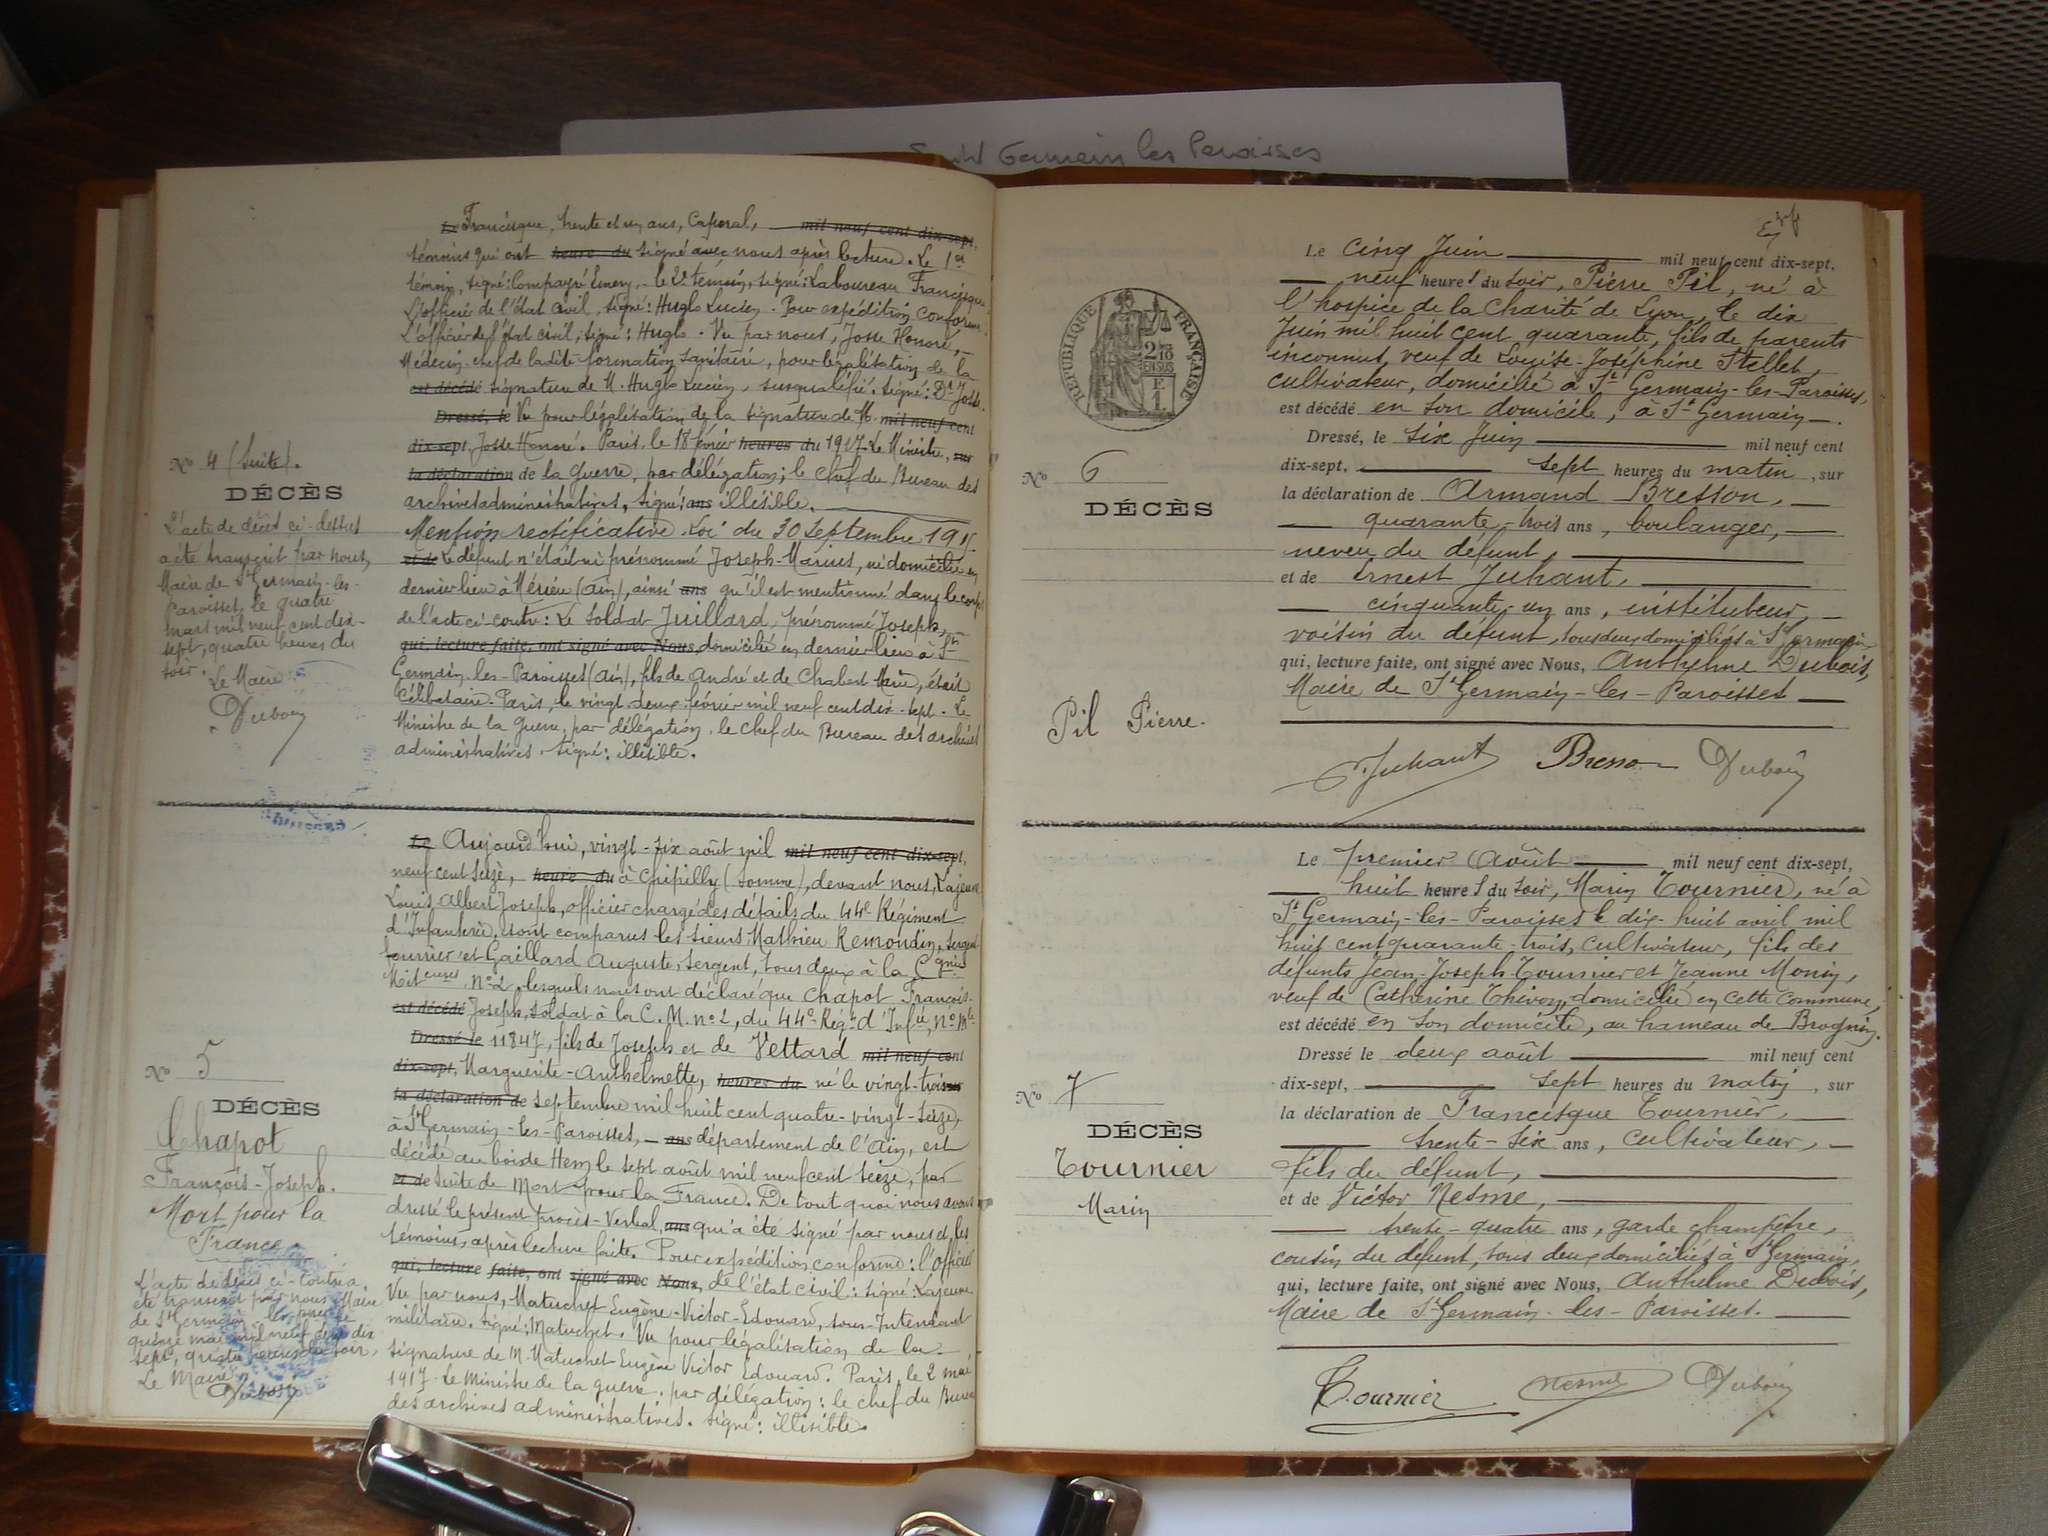 Saint Germain les Paroisses
Le Francisque, trente et un ans, Caporal, mil neuf cent dix-sept,
témoins qui ont heure du signé avec nous après lecture. Le 1er
témoin, signé: Compayré Emery, le 2e témoin, signé: Laboureau Francisque
L'officier de l'état civil, signé: Huglo Lucien. Pour expédition conforme.
L'officier de l'état civil, signé: Huglo. Vu par nous, Josse Honoré,
Médecin-chef de la dite formation sanitaire, pour légalisation de la
est décédé signature de M. Huglo Lucien, susqualifié. Signé: Dr Josse.
Dressé, le Vu pour légalisation de la signature de M. mil neuf cent
dix-sept, Josse Honoré. Paris, le 18 février heures du 1917. Le Ministre, sur
la déclaration de la guerre, par délégation; le chef du Bureau des
archives administratives, signé: ans illisible.
Mention rectificative. Loi du 30 Septembre 1915.
et de Le défunt n'était ni prénommé Joseph-Marius, ni domicilié en
dernier lieu à Mérieu (Ain), ainsi ans qu'il est mentionné dans le corps
de l'acte ci-contre: Le soldat Juillard, prénommé Joseph,
qui, lecture faite, ont signé avec Nous, domicilié en dernier lieu à St
Germain-les-Paroisses (Ain), fils de André et de Chabert Marie, était
célibataire. Paris, le vingt-deux février mil neuf cent dix-sept. Le
Ministre de la Guerre, par délégation, le chef du Bureau des archives
administratives. Signé: illisible.
No 4 (Suite).
DÉCÈS
L'acte de décès ci-dessus
a été transcrit par nous,
Maire de St Germain-les-
Paroisses, le quatre
mars mil neuf cent dix-
sept, quatre heures du
soir.
Le Maire
Dubois
Le Aujourd'hui, vingt-six août mil mil neuf cent dix-sept,
neuf cent seize, heure du à Chipilly (Somme), devant nous, Lajeune
Louis Albert Joseph, officier chargé des détails du 44e Régiment
d'Infanterie, sont comparus les sieurs Mathieu Remondin, sergent
fourrier et Gaillard Auguste, sergent, tous deux à la Cgnie
Miteuses No 2, lesquels nous ont déclaré que Chapot François-
est décédé Joseph, soldat à la C.M. no 2, du 44e Régt d'Infie, No Mle
Dressé le 11847, fils de Joseph et de Vettard mil neuf cent
dix-sept, Marguerite-Anthelmette, heures du né le vingt-trois sur
la déclaration de septembre mil huit cent quatre-vingt-seize,
à St Germain-les-Paroisses, ans département de l'Ain, est
décédé au bois de Hem le sept août mil neuf cent seize, par
et de suite de Mort pour la France. De tout quoi nous avons
dressé le présent Procès-Verbal, ans qui a été signé par nous et les
témoins, après lecture faite. Pour expédition conforme: l'officier
qui, lecture faite, ont signé avec Nous, de l'état civil: signé Lajeune
Vu par nous, Matuchet Eugène-Victor-Edouard, sous-Intendant
militaire. Signé: Matuchet. Vu pour légalisation de la
signature de M. Matuchet Eugène Victor Edouard. Paris, le 2 mai
1917. Le Ministre de la guerre, par délégation: le chef du Bureau
des archives administratives. Signé: illisible.
No 5
DÉCÈS
Chapot
François-Joseph.
Mort pour la
France.
L'acte de décès ci-contre a
été transcrit par nous Maire
de St Germain-les-
quinze mai mil neuf cent dix
sept, quatre heures du soir,
Le Maire
Dubois
RÉPUBLIQUE FRANÇAISE
Le cinq Juin mil neuf cent dix-sept,
neuf heures du soir, Pierre Pil, né à
l'hospice de la Charité de Lyon, le dix
Juin mil huit cent quarante, fils de parents
inconnus, veuf de Louise-Joséphine Stellet,
cultivateur, domicilié à St Germain-les-Paroisses,
est décédé en son domicile, à St Germain.
Dressé, le six Juin mil neuf cent
dix-sept, sept heures du matin, sur
la déclaration de Armand Bresson,
quarante-trois ans, boulanger,
neveu du défunt,
et de Ernest Juhant,
cinquante-un ans, instituteur,
voisin du défunt, tous deux domiciliés à St Germain
qui, lecture faite, ont signé avec Nous, Anthelme Dubois,
Maire de St Germain-les-Paroisses
Juhant Bresson Dubois
No 6
DÉCÈS
Pil Pierre.
Le premier Août mil neuf cent dix-sept,
huit heures du soir, Marin Tournier, né à
St Germain-les-Paroisses le dix-huit avril mil
huit cent quarante-trois, cultivateur, fils des
défunts Jean-Joseph Tournier et Jeanne Monin,
veuf de Catherine Thivon, domicilié en cette commune,
est décédé en son domicile, au hameau de Brognin.
Dressé le deux août mil neuf cent
dix-sept, sept heures du matin, sur
la déclaration de Francisque Tournier,
trente-six ans, cultivateur,
fils du défunt,
et de Victor Nesme,
trente-quatre ans, garde champêtre,
cousin du défunt, tous deux domiciliés à St Germain,
qui, lecture faite, ont signé avec Nous, Anthelme Dubois,
Maire de St Germain-les-Paroisses.
Tournier Nesme Dubois
No 7
DÉCÈS
Tournier
Marin